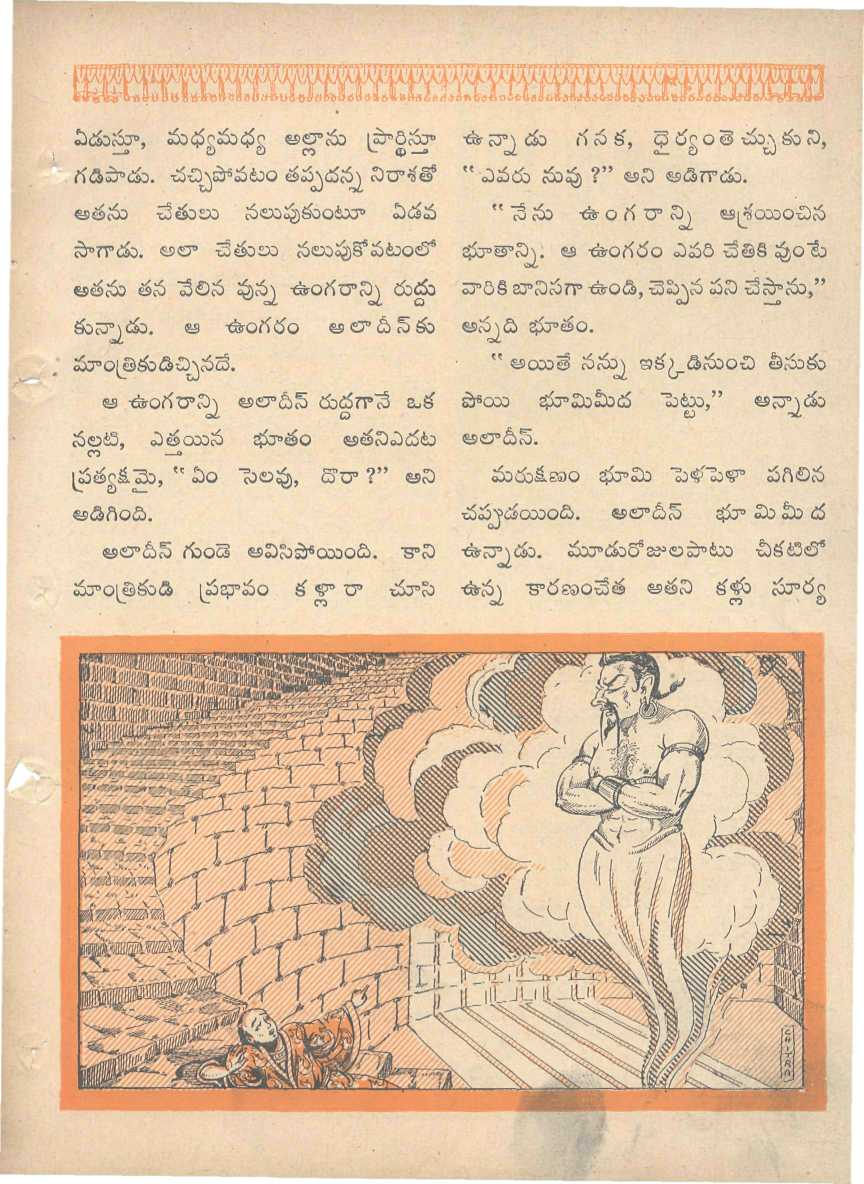 ఏడుస్తూ, మధ్యమధ్య అల్లాను ప్రార్థిస్తూ
గడిపాడు. చచ్చిపోవటం తప్పదన్న నిరాశతో
అతను చేతులు నలుపుకుంటూ ఏడవ
సాగాడు. అలా చేతులు నలుపుకోవటంలో
అతను తన వేలిన వున్న ఉంగరాన్ని రుద్దు
కున్నాడు. ఆ ఉంగరం అలాదీన్‌కు
మాంత్రికుడిచ్చినదే.
ఆ ఉంగరాన్ని అలాదీన్ రుద్దగానే ఒక
నల్లటి, ఎత్తయిన భూతం అతనిఎదట
ప్రత్యక్షమై, “ఏం సెలవు, దొరా?” అని
అడిగింది.
అలాదీన్ గుండె అవిసిపోయింది. కాని
మాంత్రికుడి ప్రభావం కళ్లారా చూసి
ఉన్నాడు గనక, ధైర్యంతెచ్చుకుని,
“ఎవరు నువు?” అని అడిగాడు.
“నేను ఉంగరాన్ని ఆశ్రయించిన
భూతాన్ని. ఆ ఉంగరం ఎవరి చేతికి వుంటే
వారికి బానిసగా ఉండి, చెప్పిన పని చేస్తాను,”
అన్నది భూతం.
“అయితే నన్ను ఇక్కడినుంచి తీసుకు
పోయి భూమిమీద పెట్టు,” అన్నాడు
అలాదీన్.
మరుక్షణం భూమి పెళపెళా పగిలిన
చప్పుడయింది. అలాదీన్ భూమిమీద
ఉన్నాడు. మూడురోజులపాటు చీకటిలో
ఉన్న కారణంచేత అతని కళ్లు సూర్య
CHITRA